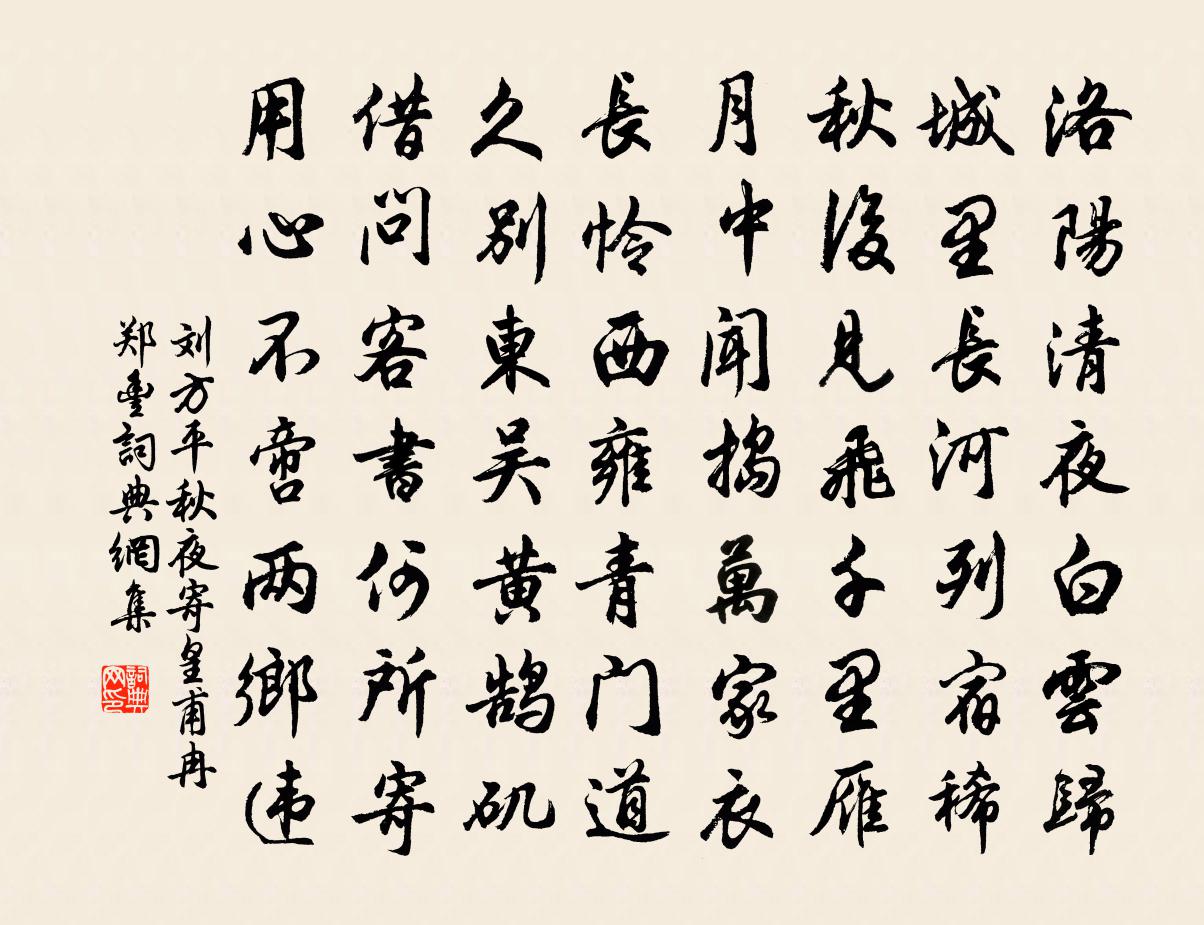 洛陽清夜白雲歸
城里長河列宿稀
秋後見飛千里雁
月中闻搗萬家衣
長怜西雍青门道
久别東吴黄鹄矶
借问客書何所寄
用心不啻两鄉违
刘方平秋夜寄皇甫冉
郑豐詞典網集
詞典网印